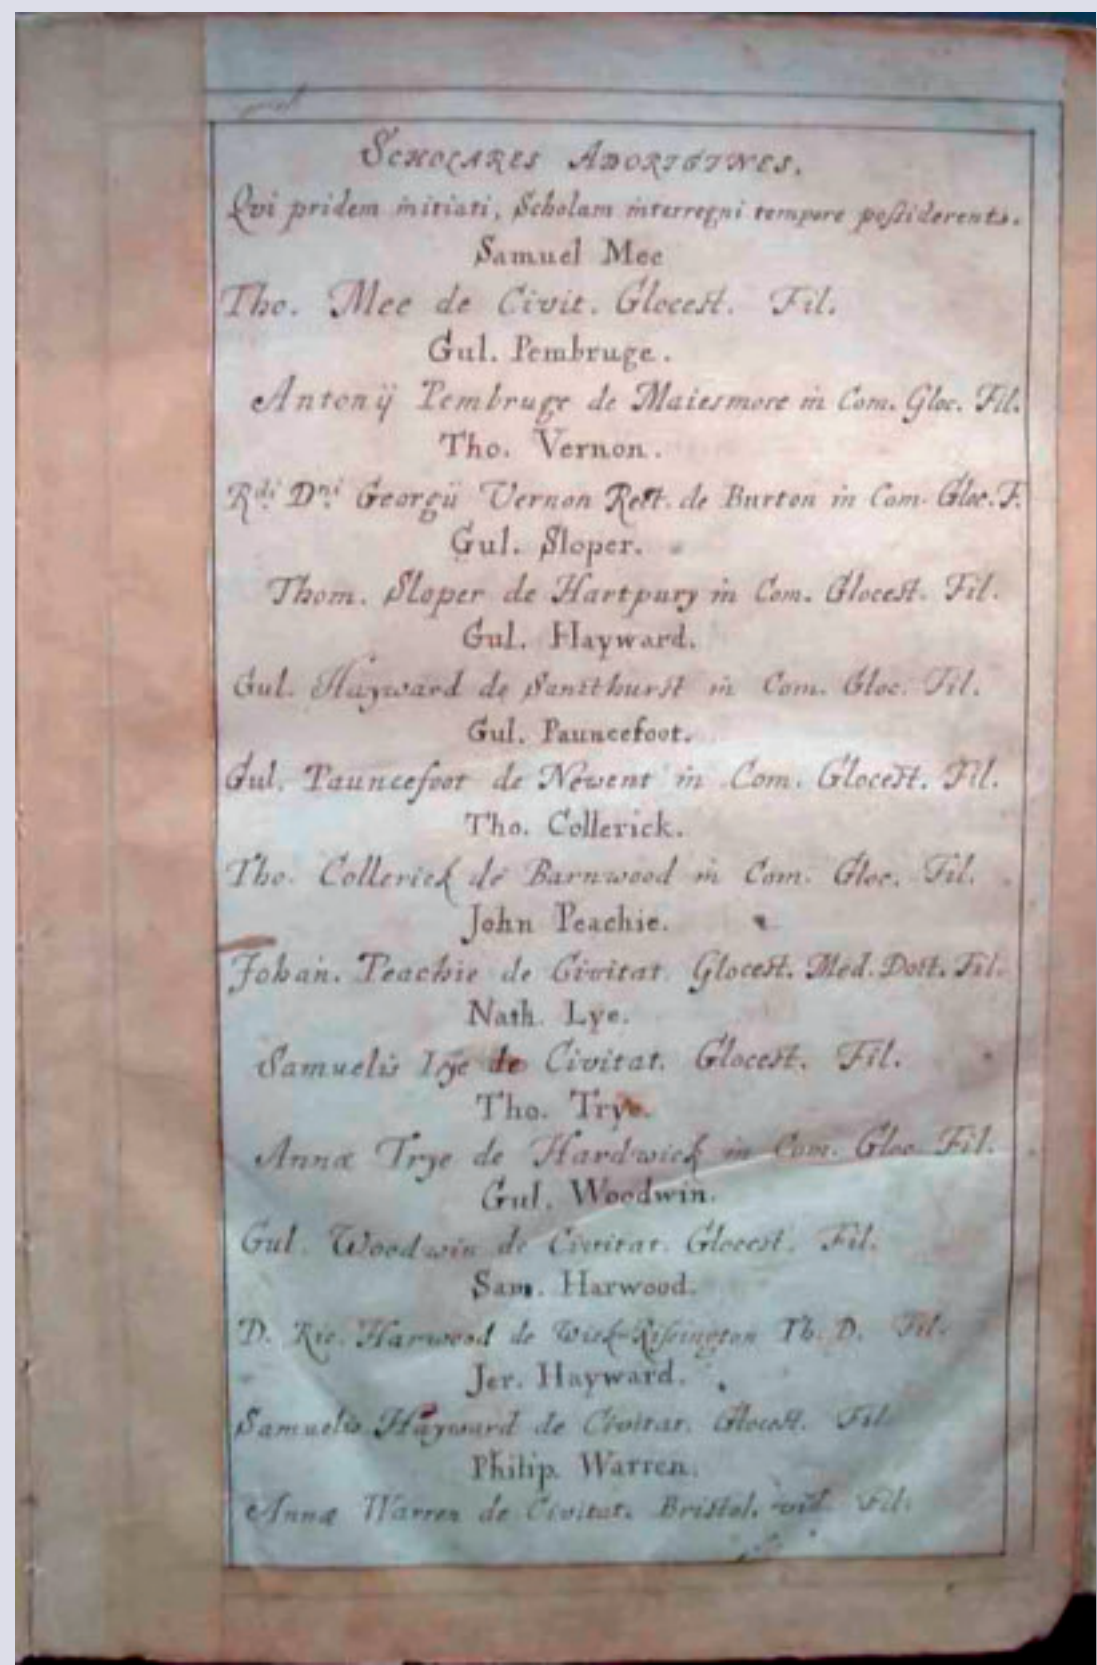 SCHOLARES ABORIGINES.
Qvi pridem initiati, Scholam interregni tempore possiderents.
Samuel Mee
Tho. Mee de Civit. Glocest. Fil.
Gul. Pembruge.
Antonij Pembruge de Maiesmore in Com. Gloc. Fil.
Tho. Vernon.
Rdi. Dni. Georgii Vernon Rect. de Burton in Com. Gloc. F.
Gul. Sloper.
Thom. Sloper de Hartpury in Com. Glocest. Fil.
Gul. Hayward.
Gul. Hayward de Sandhurst in Com. Gloc. Fil.
Gul. Pauncefoot.
Gul. Pauncefoot de Newent in Com. Glocest. Fil.
Tho. Collerick.
Tho. Collerick de Barnwood in Com. Gloc. Fil.
John Peachie.
Johan. Peachie de Civitat. Glocest. Med. Doct. Fil.
Nath. Lye.
Samuelis Lye de Civitat. Glocest. Fil.
Tho. Trye.
Annæ Trye de Hardwick in Com. Gloc. Fil.
Gul. Woodwin.
Gul. Woodwin de Civitat. Glocest. Fil.
Sam. Harwood.
D. Ric. Harwood de Wick-Rissington Th. D. Fil.
Jer. Hayward.
Samuelis Hayward de Civitat. Glocest. Fil.
Philip. Warren.
Annæ Warren de Civitat. Bristol. vid. Fil.